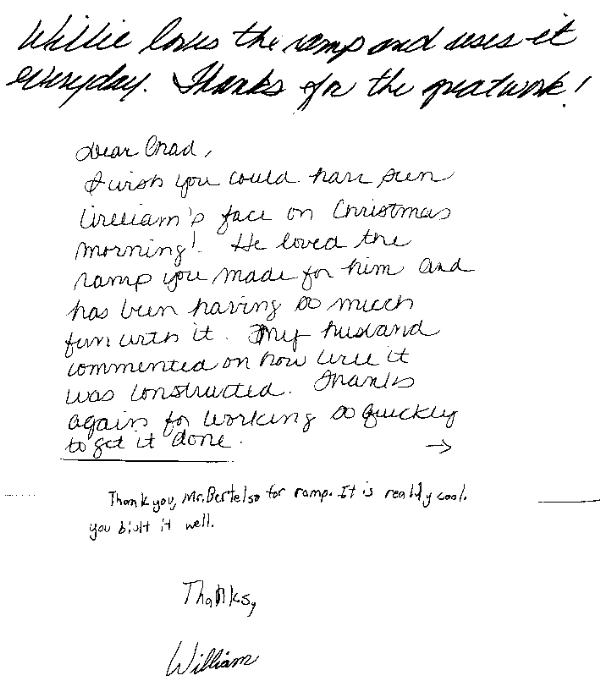 Willie loves the ramp and uses it
everyday. Thanks for the great work!
Dear Chad,
I wish you could have seen
William's face on Christmas
morning! He loved the
ramp you made for him and
has been having so much
fun with it. My husband
commented on how well it
was constructed. Thanks
again for working so quickly
to get it done. →
Thank you, Mr. Bertelso for ramp. It is really cool.
you bilt it well.
Thanks,
William